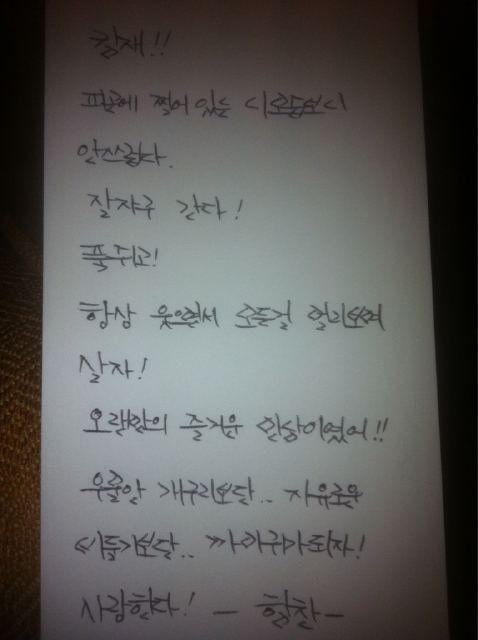 칠재!!
피곤에 찔어 있는
안쓰럽다.
잘자구 간다!
푹쉬고!
항상 웃으면서 모든걸 멀리보며
살자!
오랜만의 즐거운 환상이였어!!
우물안 개구리보단.. 자유로운
비둘기보단.. 까마귀가되자!
사랑한다! -